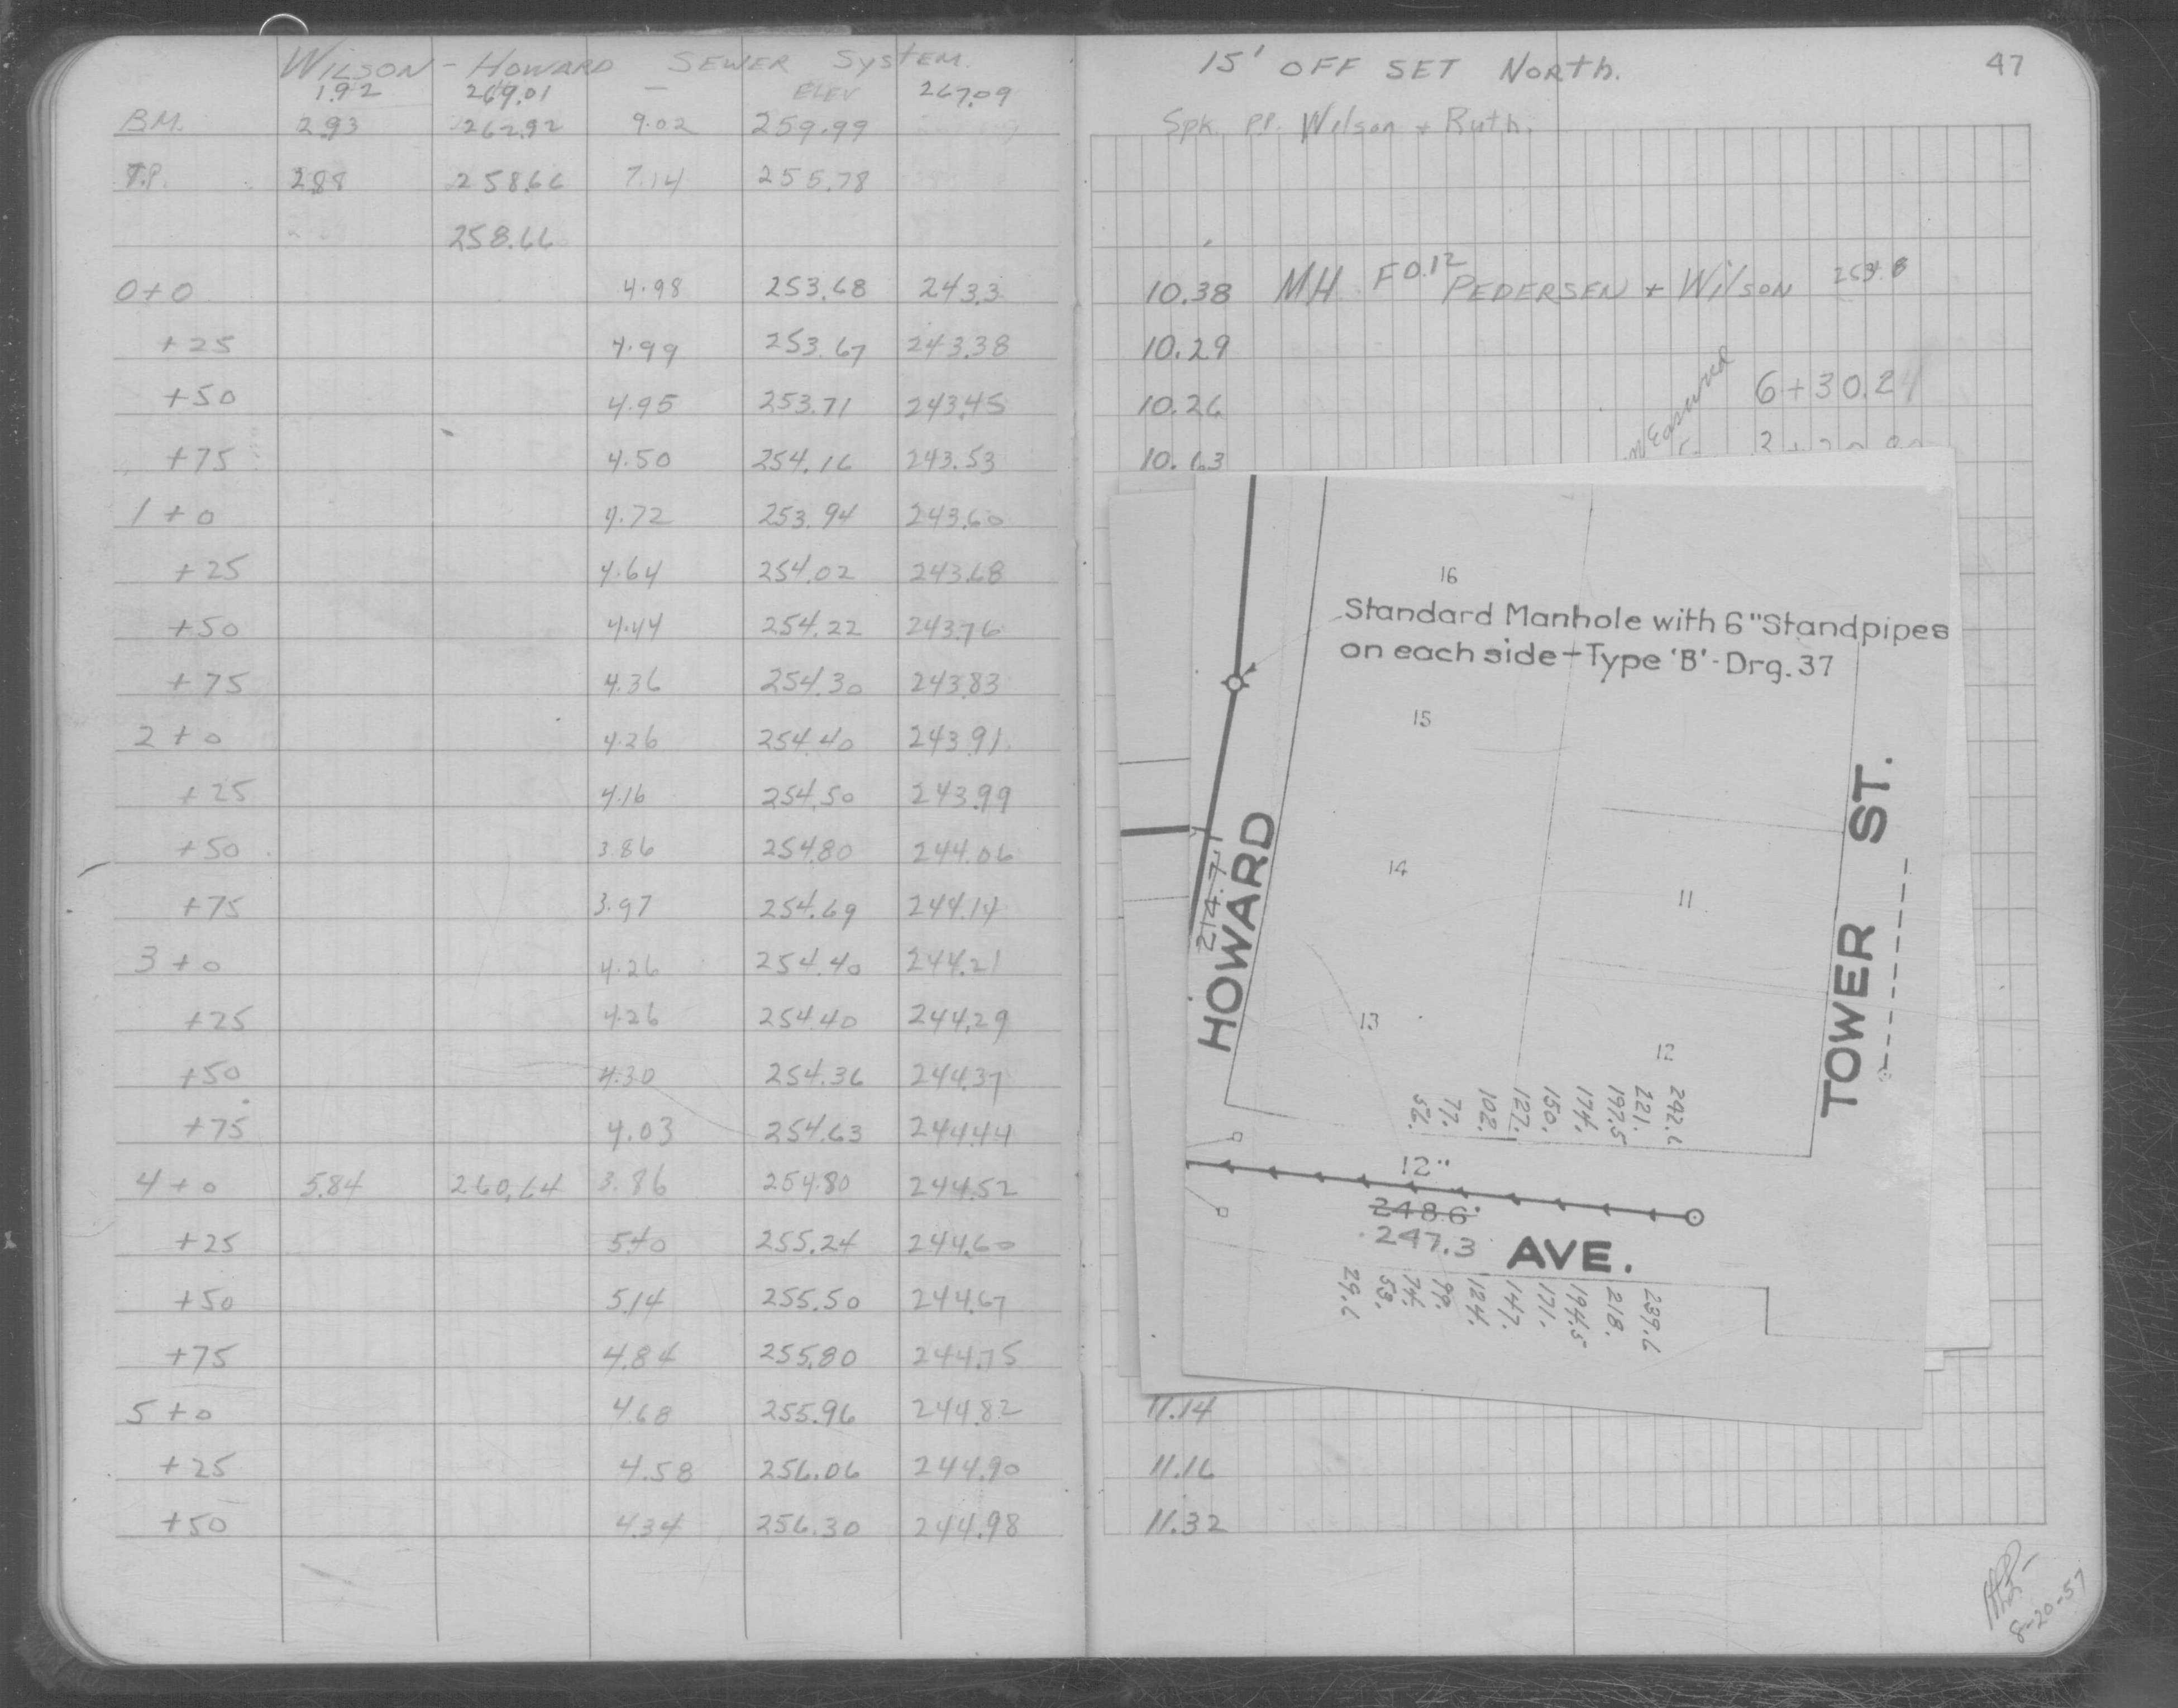 WILSON - HOWARD SEWER SYSTEM.
1.92 269.01 — ELEV 267.09
BM. 2.93 262.92 9.02 259.99
T.P. 2.88 258.66 7.14 255.78
258.66
0+0 4.98 253.68 243.3
+25 4.99 253.67 243.38
+50 4.95 253.71 243.45
+75 4.50 254.16 243.53
1+0 4.72 253.94 243.60
+25 4.64 254.02 243.68
+50 4.44 254.22 243.76
+75 4.36 254.30 243.83
2+0 4.26 254.40 243.91
+25 4.16 254.50 243.99
+50 3.86 254.80 244.06
+75 3.97 254.69 244.14
3+0 4.26 254.40 244.21
+25 4.26 254.40 244.29
+50 4.30 254.36 244.37
+75 4.03 254.63 244.44
4+0 5.84 260.64 3.86 254.80 244.52
+25 5.40 255.24 244.60
+50 5.14 255.50 244.67
+75 4.84 255.80 244.75
5+0 4.68 255.96 244.82
+25 4.58 256.06 244.90
+50 4.34 256.30 244.98
15' OFF SET NORTH. 47
Spk. PP. Wilson + Ruth.
10.38 MH F 0.12 PEDERSEN + WILSON
10.29
10.26 6+30.24
10.63
16
Standard Manhole with 6" Standpipes
on each side - Type 'B' - Drg. 37
15
14
11
13
12
HOWARD
214.7'
TOWER ST.
56. 77. 102. 127. 150. 174. 197.5 221. 242.6
12"
248.6'
247.3
AVE.
29.6 53. 74. 99. 124. 147. 171. 194.5 218. 239.6
11.14
11.16
11.32
8-20-57